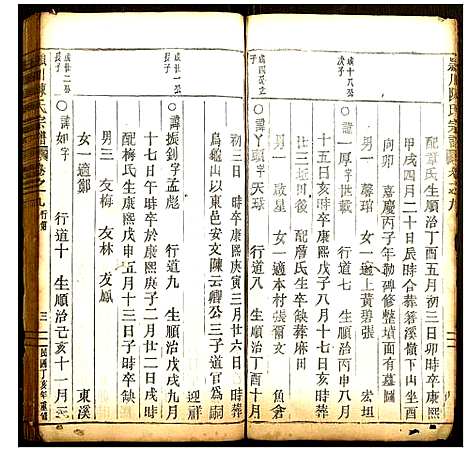 潁川陳氏宗譜 卷之九
配章氏生順治丁酉五月初三日卯時卒康熙
甲戌四月二十日辰時合葬箬溪嶺下山坐酉
向卯 嘉慶丙子年勒碑修整墳面有圖
男一 馨琯 女一 適上黃碧張 宏坦
成十八公長子
一厚字世載 行道七 生順治丙申八月
十五日亥時卒康熙戊子八月十七日寅時葬
廿三都坑 配詹氏生卒缺葬麻田
男一 啟星 女一 適本村張甫文 魚倉
○諱丫頭字天球 行道八 生順治丁酉十月
初三日 時卒康熙庚寅三月廿六日 時葬
烏龜山以東邑安文陳云卿公三子道官爲嗣
迎祥
成廿一公長子
○諱振釗字孟彪 行道九 生順治戊戌九月
十七日午時卒於康熙庚子二月廿二日戌時
配梅氏生康熙戊申五月十三日子時卒缺
男三 友梅 友林 友鳳
女一 適鄭 東溪
成廿二公長子
○諱如字 行道十 生順治己亥十一月三
潁川陳氏宗譜 卷之九 行第 三 民國丁亥年重修